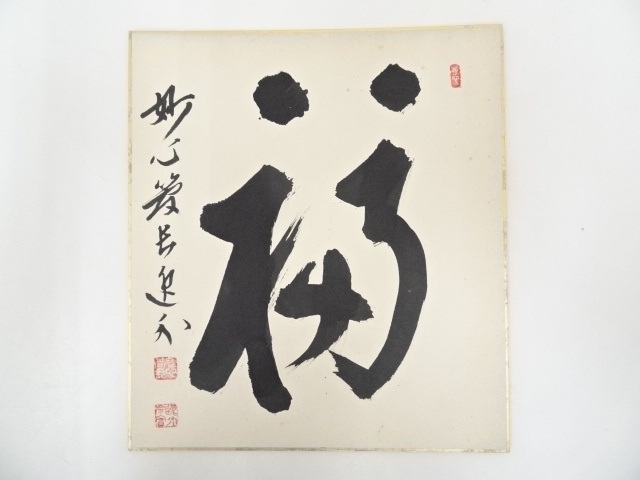 福
妙心管長逸外